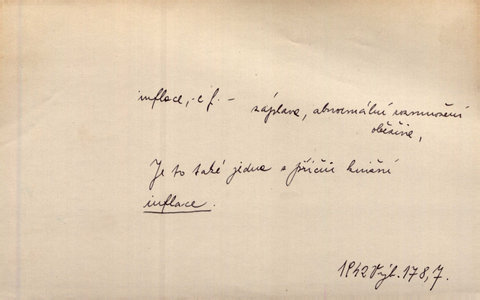 inflace, -e f. – záplava, abnormální rozmnožení
oběživa,
Je to také jedna z příčin knižní
inflace.
1942 Výb. 178,7.